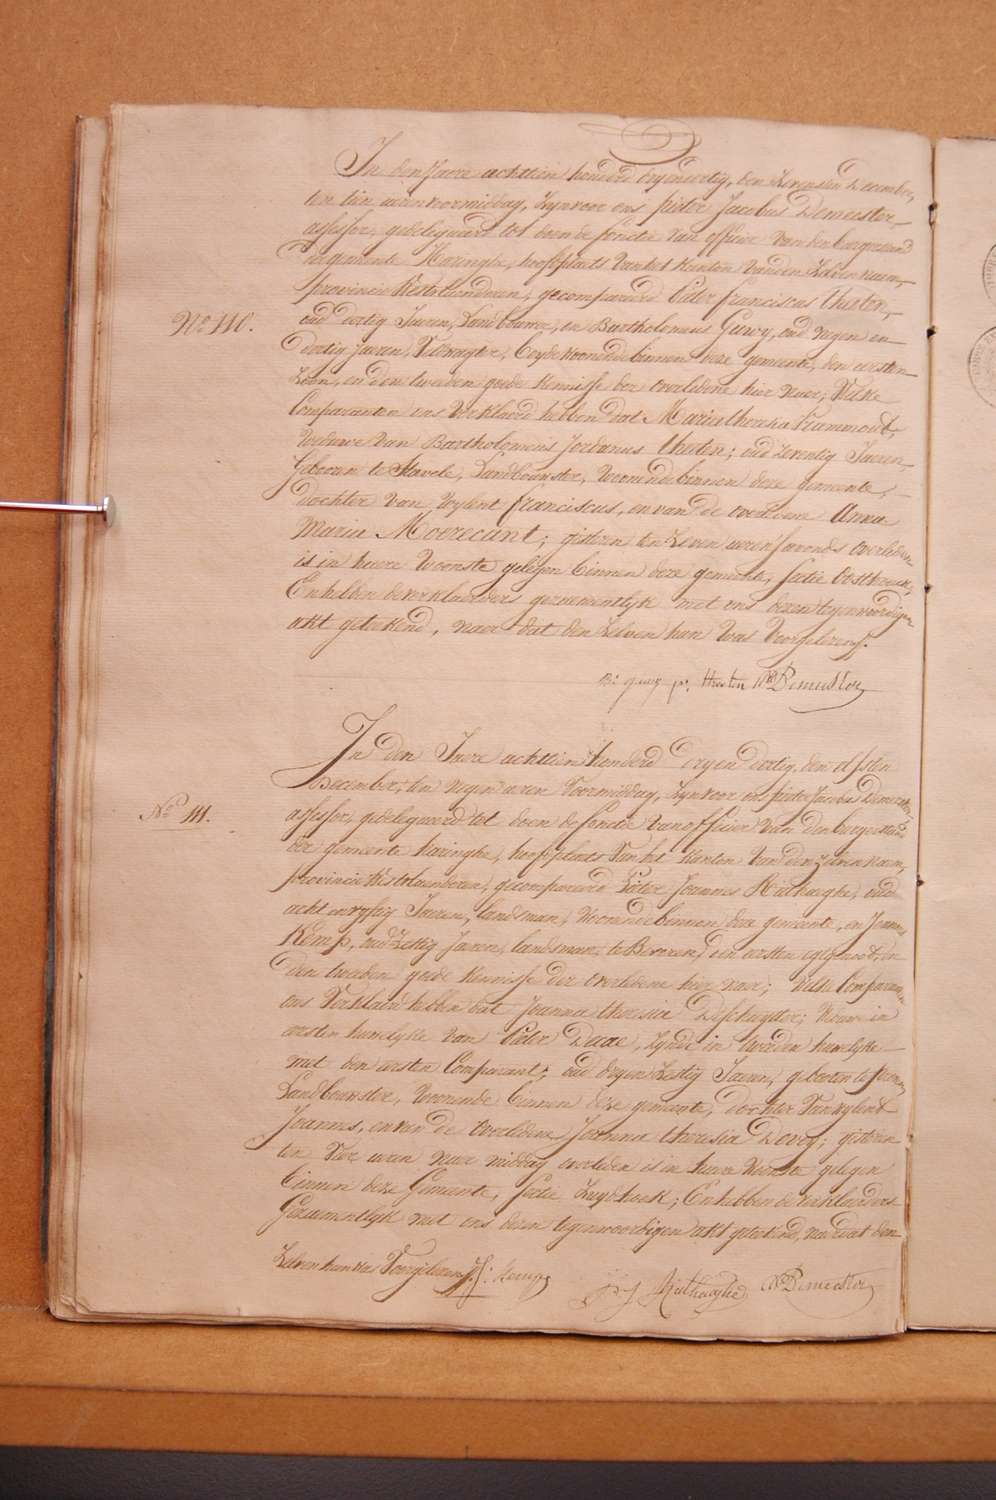 In den Jaere achttien honderd dryendertig, den Zevensten December,
ten tien uren voormiddag, Zyn voor ons pieter Jacobus Demeester,
assessor, gedelegueerd tot doen de fonctie van officier van den burgerstand
der gemeente Haringhe, hoofdplaets van het kanton van den Zelven naem,
provincie Westvlaenderen, gecompareerd Pieter franciscus Thesten,
No 110.
oud dertig Jaeren, Landbouwer, en Bartholomeus Geuvy, oud negen en
dertig Jaeren, beyde woonende binnen deze gemeente, den eersten
Zoon, en den tweeden goede kennisse der overledene hier naer; Welke
Comparanten ons Verklaerd hebben dat Maria theresia Frammout,
Weduwe van Bartholomeus Jordanus thesten; oud Zeventig Jaeren,
Geboren te Stavele, Landbouwster, Woonende binnen deze gemeente,
dochter van Wylent franciscus, en van de overledene Anna
Maria Moerecant; gisteren ten Zeven uren s'avonds overleden
is in heure Woonste gelegen binnen deze gemeente, sectie Oosthoek;
En hebben de verklaerders gezaementlyk met ons dezen tegenwoordigen
akt geteekend, naer dat den Zelven hun Was Voorgelezen.
B: geuvy p. thesten PJ Demeester
In den Jaere achttien honderd dryen dertig, den elfsten
December, ten negen uren Voormiddag, Zyn voor ons pieter Jacobus Demeester,
No 111.
assessor, gedelegueerd tot doen de fonctie van officier van den burgerstand
der gemeente haringhe, hoofdplaets Van het Kanton Van den Zelven naem,
provincie Westvlaenderen, gecompareerd Pieter Joannes Ruthaeghe, oud
acht en vyftig Jaeren, landsman, Woonende binnen deze gemeente, en Joannes
Kemp, oud Zestig Jaeren, landsman, te Beveren, den eersten egtgenoot, en
den tweeden goede kennisse der overledene hier naer; Welke Comparanten
ons Verklaerd hebben dat Joanna theresia Deschuytter; Weduwe in
eersten huwelyke van Pieter Decae, Zynde in tweeden huwelyke
met den eersten Comparant; oud dryen Zestig Jaeren, geboren te
Landbouwster, Woonende binnen deze gemeente, dochter Van wylent
Joannes, en van de overledene Joanna theresia Devey; gisteren
ten Vier uren naer middag overleden is in heure Woonste gelegen
binnen deze Gemeente, sectie Zuydhoek; En hebben de verklaerders
Gezaementlyk met ons dezen tegenwoordigen akt geteekend, naer dat den
Zelven hun Was Voorgelezen. J: Kemp
P J Ruthaeghe PJ Demeester